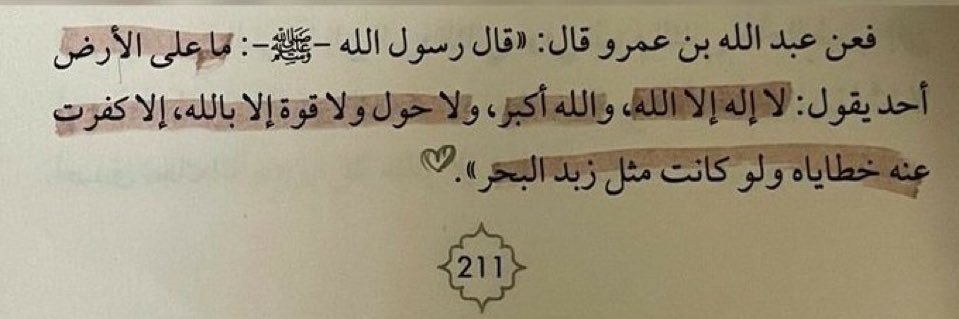 فعن عبد الله بن عمرو قال: «قال رسول الله -ﷺ-: ما على الأرض
أحد يقول: لا إله إلا الله، والله أكبر، ولا حول ولا قوة إلا بالله، إلا كفرت
عنه خطاياه ولو كانت مثل زبد البحر».
211